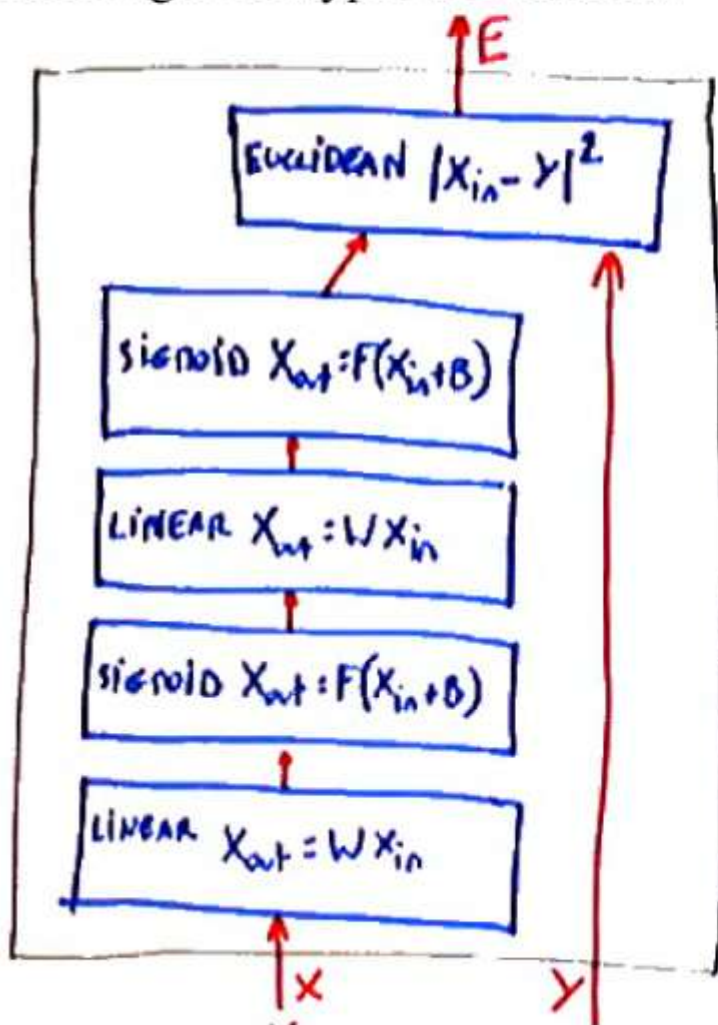 E
EUCLIDEAN |Xin - Y|²
SIGMOID Xout = F(Xin+B)
LINEAR Xout = W Xin
SIGMOID Xout = F(Xin+B)
LINEAR Xout = W Xin
X Y